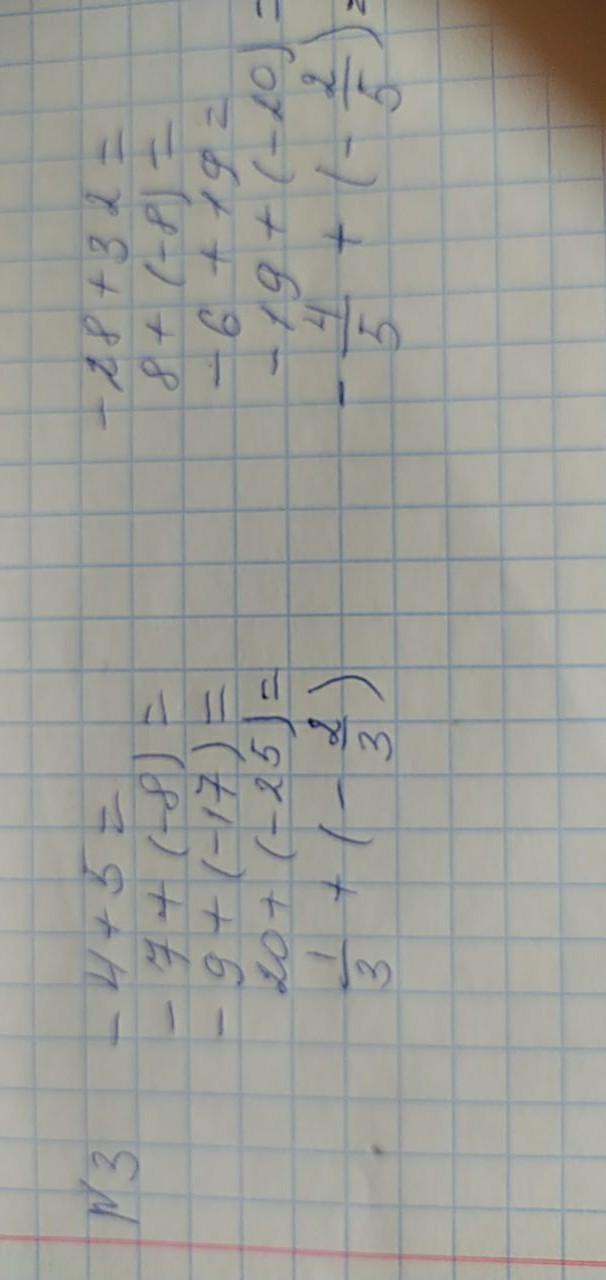 №3
-4+5=
-7+(-8)=
-9+(-17)=
20+(-25)=
1/3 + (-2/3)
-28+32=
8+(-8)=
-6+19=
-19+(-20)=
-4/5 + (-2/5)=